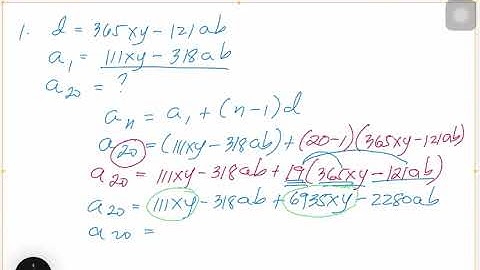 1. d = 365xy - 121ab
a₁ = 111xy - 318ab
a₂₀ = ?
aₙ = a₁ + (n-1)d
a₂₀ = (111xy - 318ab) + (20-1)(365xy - 121ab)
a₂₀ = 111xy - 318ab + 19(365xy - 121ab)
a₂₀ = 111xy - 318ab + 6935xy - 2280ab
a₂₀ =